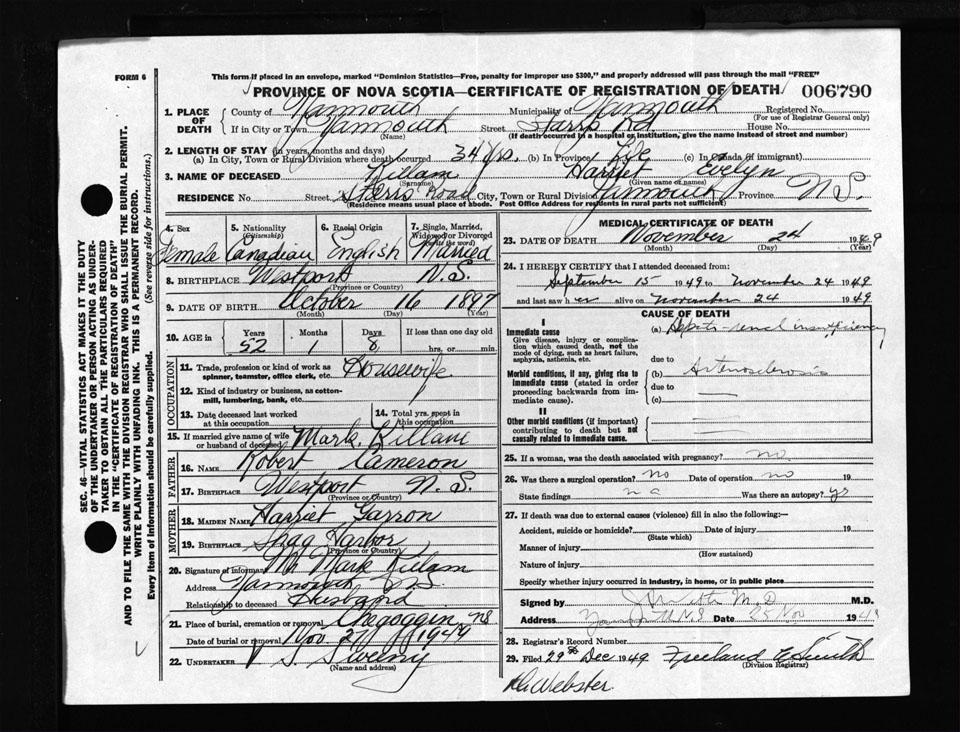 FORM 6
This form if placed in an envelope, marked "Dominion Statistics—Free, penalty for improper use $300," and properly addressed will pass through the mail "FREE"
PROVINCE OF NOVA SCOTIA—CERTIFICATE OF REGISTRATION OF DEATH 006790
SEC. 46—VITAL STATISTICS ACT MAKES IT THE DUTY
OF THE UNDERTAKER OR PERSON ACTING AS UNDER-
TAKER TO OBTAIN ALL THE PARTICULARS REQUIRED
IN THE "CERTIFICATE OF REGISTRATION OF DEATH"
AND TO FILE THE SAME WITH THE DIVISION REGISTRAR WHO SHALL ISSUE THE BURIAL PERMIT.
WRITE PLAINLY WITH UNFADING INK. THIS IS A PERMANENT RECORD.
Every item of information should be carefully supplied. (See reverse side for instructions.)
1. PLACE OF DEATH
County of Yarmouth Municipality of Yarmouth Registered No.
(For use of Registrar General only)
If in City or Town Yarmouth Street Rd. House No.
(Name) (If death occurred in a hospital or institution, give the name instead of street and number)
2. LENGTH OF STAY (in years, months and days)
(a) In City, Town or Rural Division where death occurred 34 yrs. (b) In Province Life (c) In Canada (if immigrant)
3. NAME OF DECEASED Killam Harriet Evelyn
(Surname) (Given name or names)
RESIDENCE No. Street Road City, Town or Rural Division Yarmouth Province N.S.
(Residence means usual place of abode. Post Office Address for residents in rural parts not sufficient)
4. Sex Female
5. Nationality (Citizenship) Canadian
6. Racial Origin English
7. Single, Married, Widowed or Divorced (write the word) Married
8. BIRTHPLACE Westport N.S.
(Province or Country)
9. DATE OF BIRTH October 16 1897
(Month) (Day) (Year)
10. AGE in Years Months Days If less than one day old
52 1 8 hrs. or min.
OCCUPATION
11. Trade, profession or kind of work as spinner, teamster, office clerk, etc. Housewife
12. Kind of industry or business, as cotton-mill, lumbering, bank, etc.
13. Date deceased last worked at this occupation
14. Total yrs. spent in this occupation
15. If married give name of wife or husband of deceased Mark Killam
FATHER
16. NAME Robert Cameron
17. BIRTHPLACE Westport N.S.
(Province or Country)
MOTHER
18. MAIDEN NAME Harriet Garron
19. BIRTHPLACE Shag Harbor
(Province or Country)
20. Signature of informant Mr Mark Killam
Address Yarmouth N.S.
Relationship to deceased Husband
21. Place of burial, cremation or removal Chegoggin NS
Date of burial or removal Nov. 27 1949
22. UNDERTAKER V S. Sweeny
(Name and address)
MEDICAL CERTIFICATE OF DEATH
23. DATE OF DEATH November 24 1949
(Month) (Day) (Year)
24. I HEREBY CERTIFY that I attended deceased from:
September 15 1949 to November 24 1949
and last saw her alive on November 24 1949
CAUSE OF DEATH
I
Immediate cause
Give disease, injury or complication which caused death, not the mode of dying, such as heart failure, asphyxia, asthenia, etc.
(a) Hepato-renal insufficiency
due to
Morbid conditions, if any, giving rise to immediate cause (stated in order proceeding backwards from immediate cause).
(b) Arteriosclerosis
due to
(c)
II
Other morbid conditions (if important) contributing to death but not causally related to immediate cause.
25. If a woman, was the death associated with pregnancy? no
26. Was there a surgical operation? no Date of operation no 19
State findings na Was there an autopsy? yes
27. If death was due to external causes (violence) fill in also the following:—
Accident, suicide or homicide? Date of injury 19
(State which)
Manner of injury
(How sustained)
Nature of injury
Specify whether injury occurred in industry, in home, or in public place
Signed by M.D. M.D.
Address Yarmouth N.S Date 25 Nov 1949
28. Registrar's Record Number
29. Filed 29th Dec 1949 Freeland E Smith
(Division Registrar)
Webster.